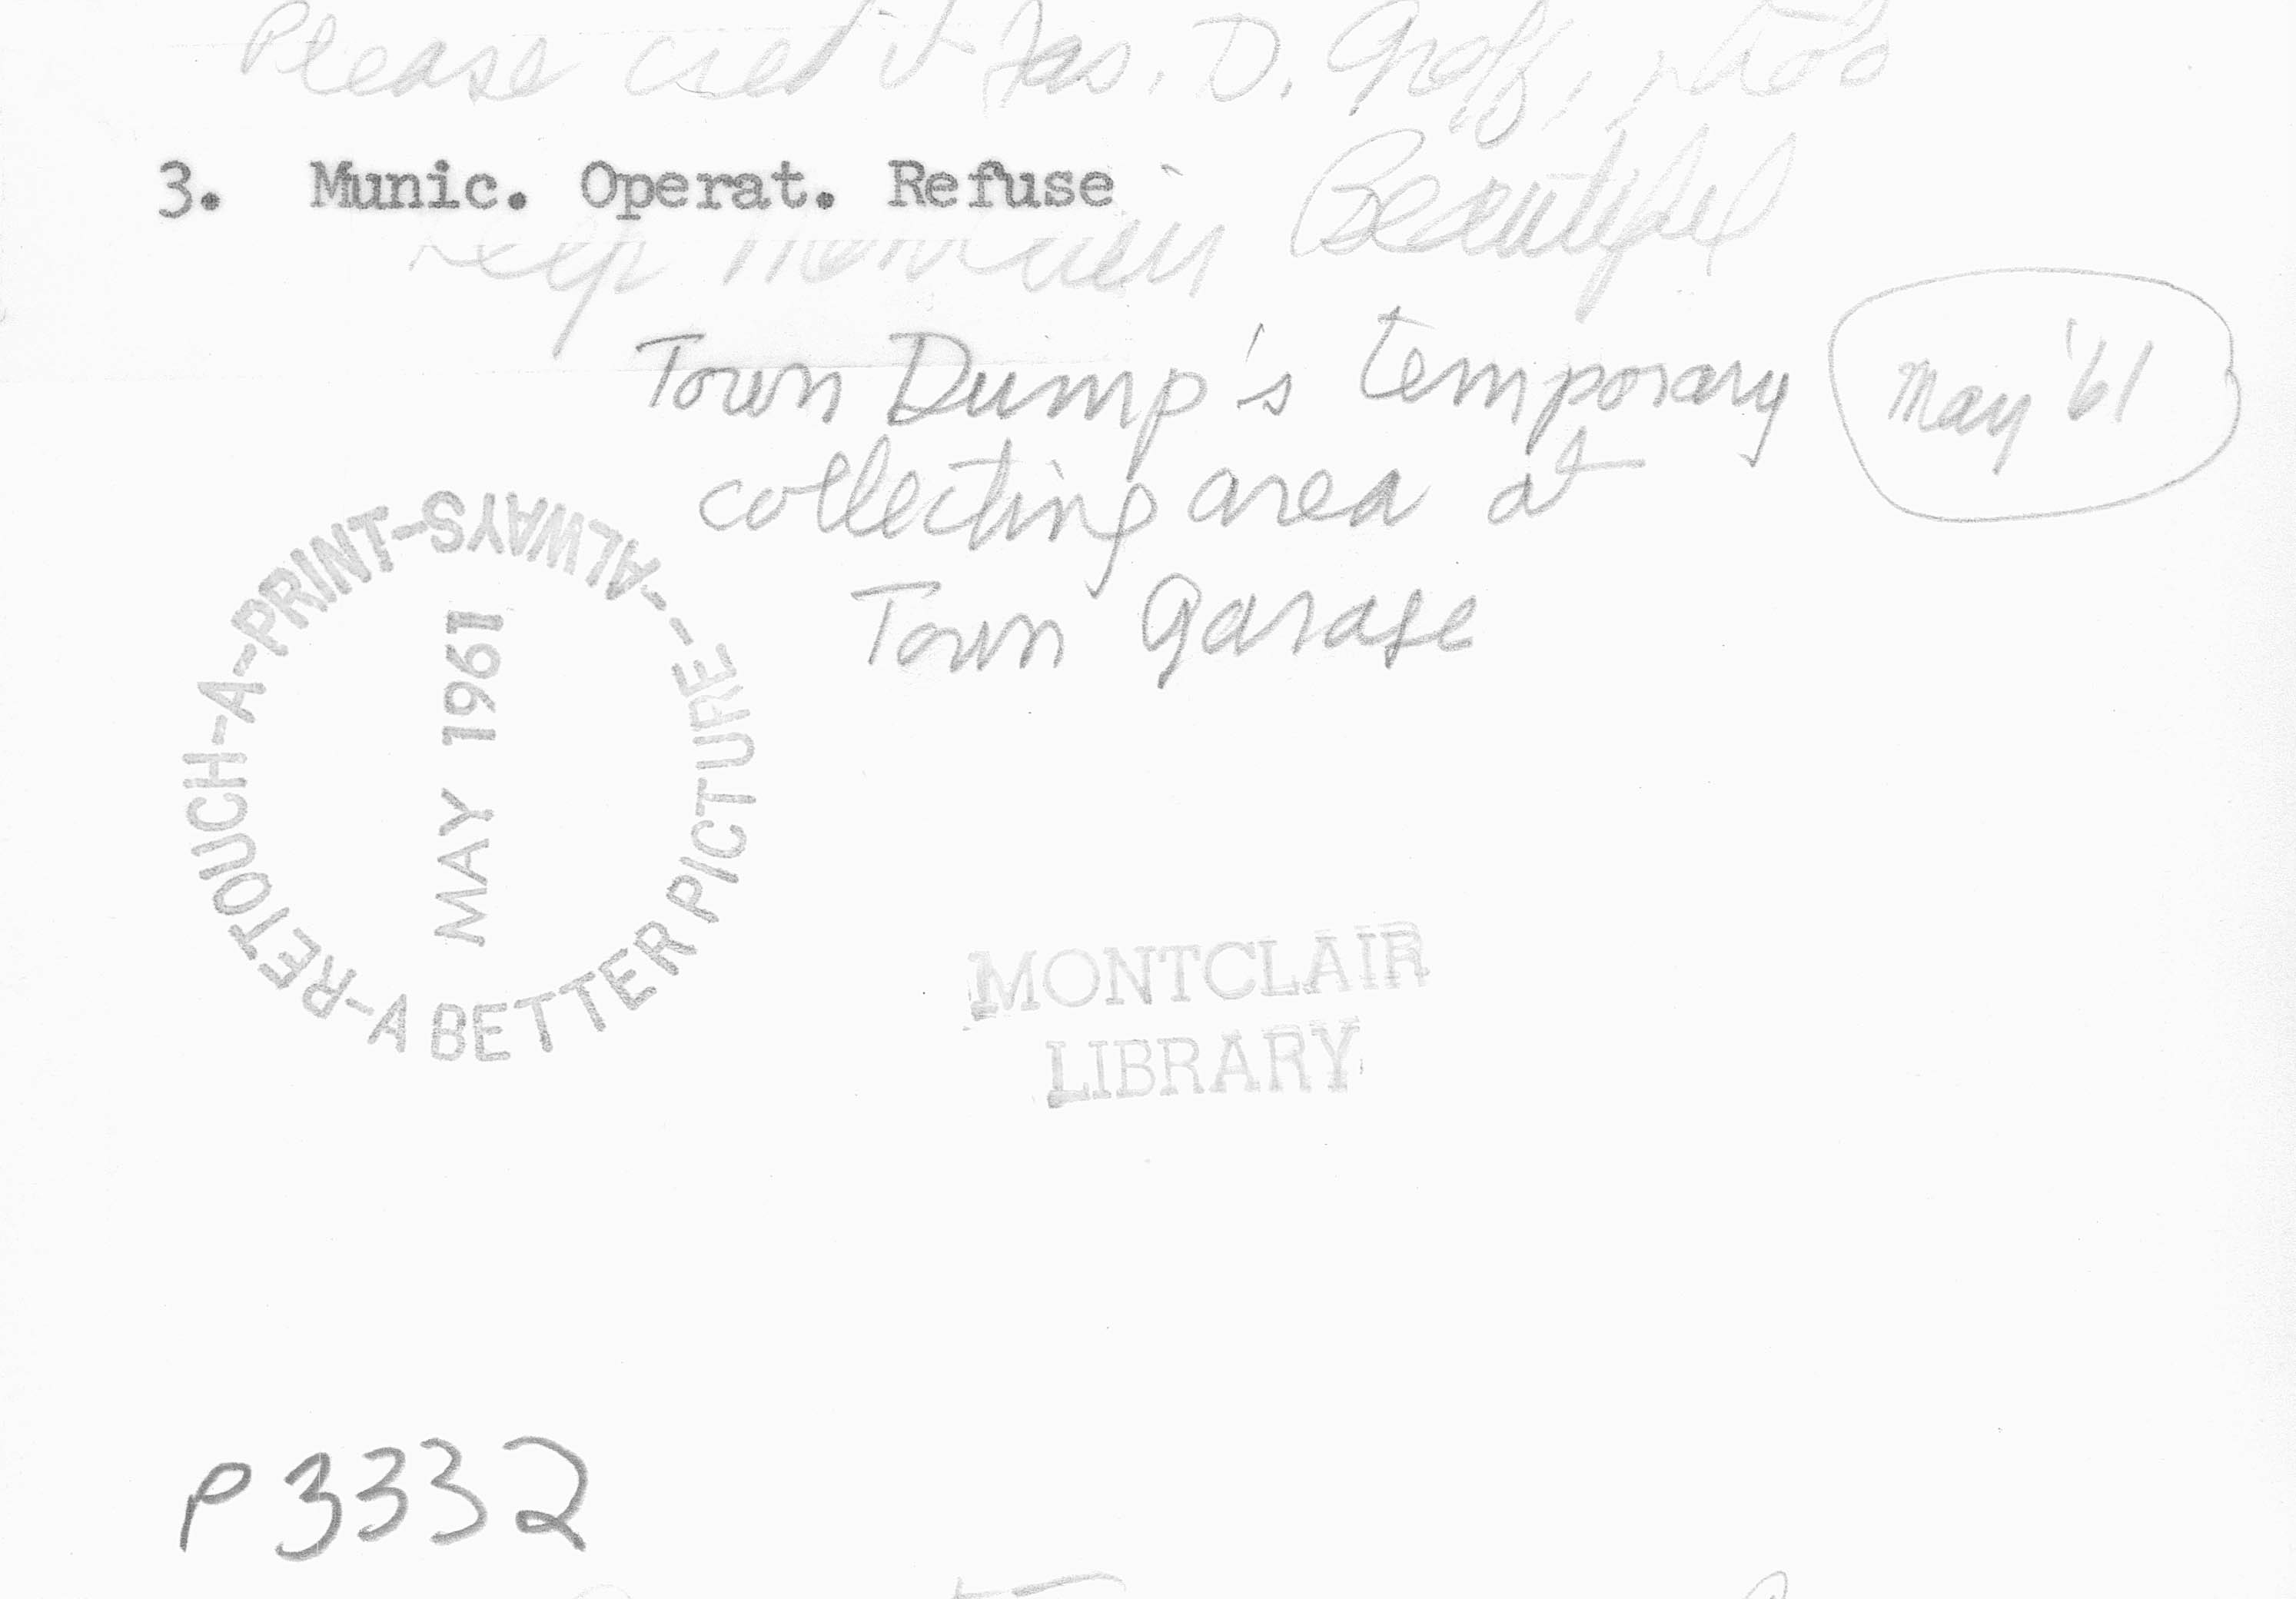 Please credit Jas. D. Graff, photo
3. Munic. Operat. Refuse
Keep Montclair Beautiful
Town Dump's temporary
collecting area at
Town Garage
May '61
RETOUCH-A-PRINT-ALWAYS--A BETTER PICTURE-
MAY 1961
MONTCLAIR
LIBRARY
P3332